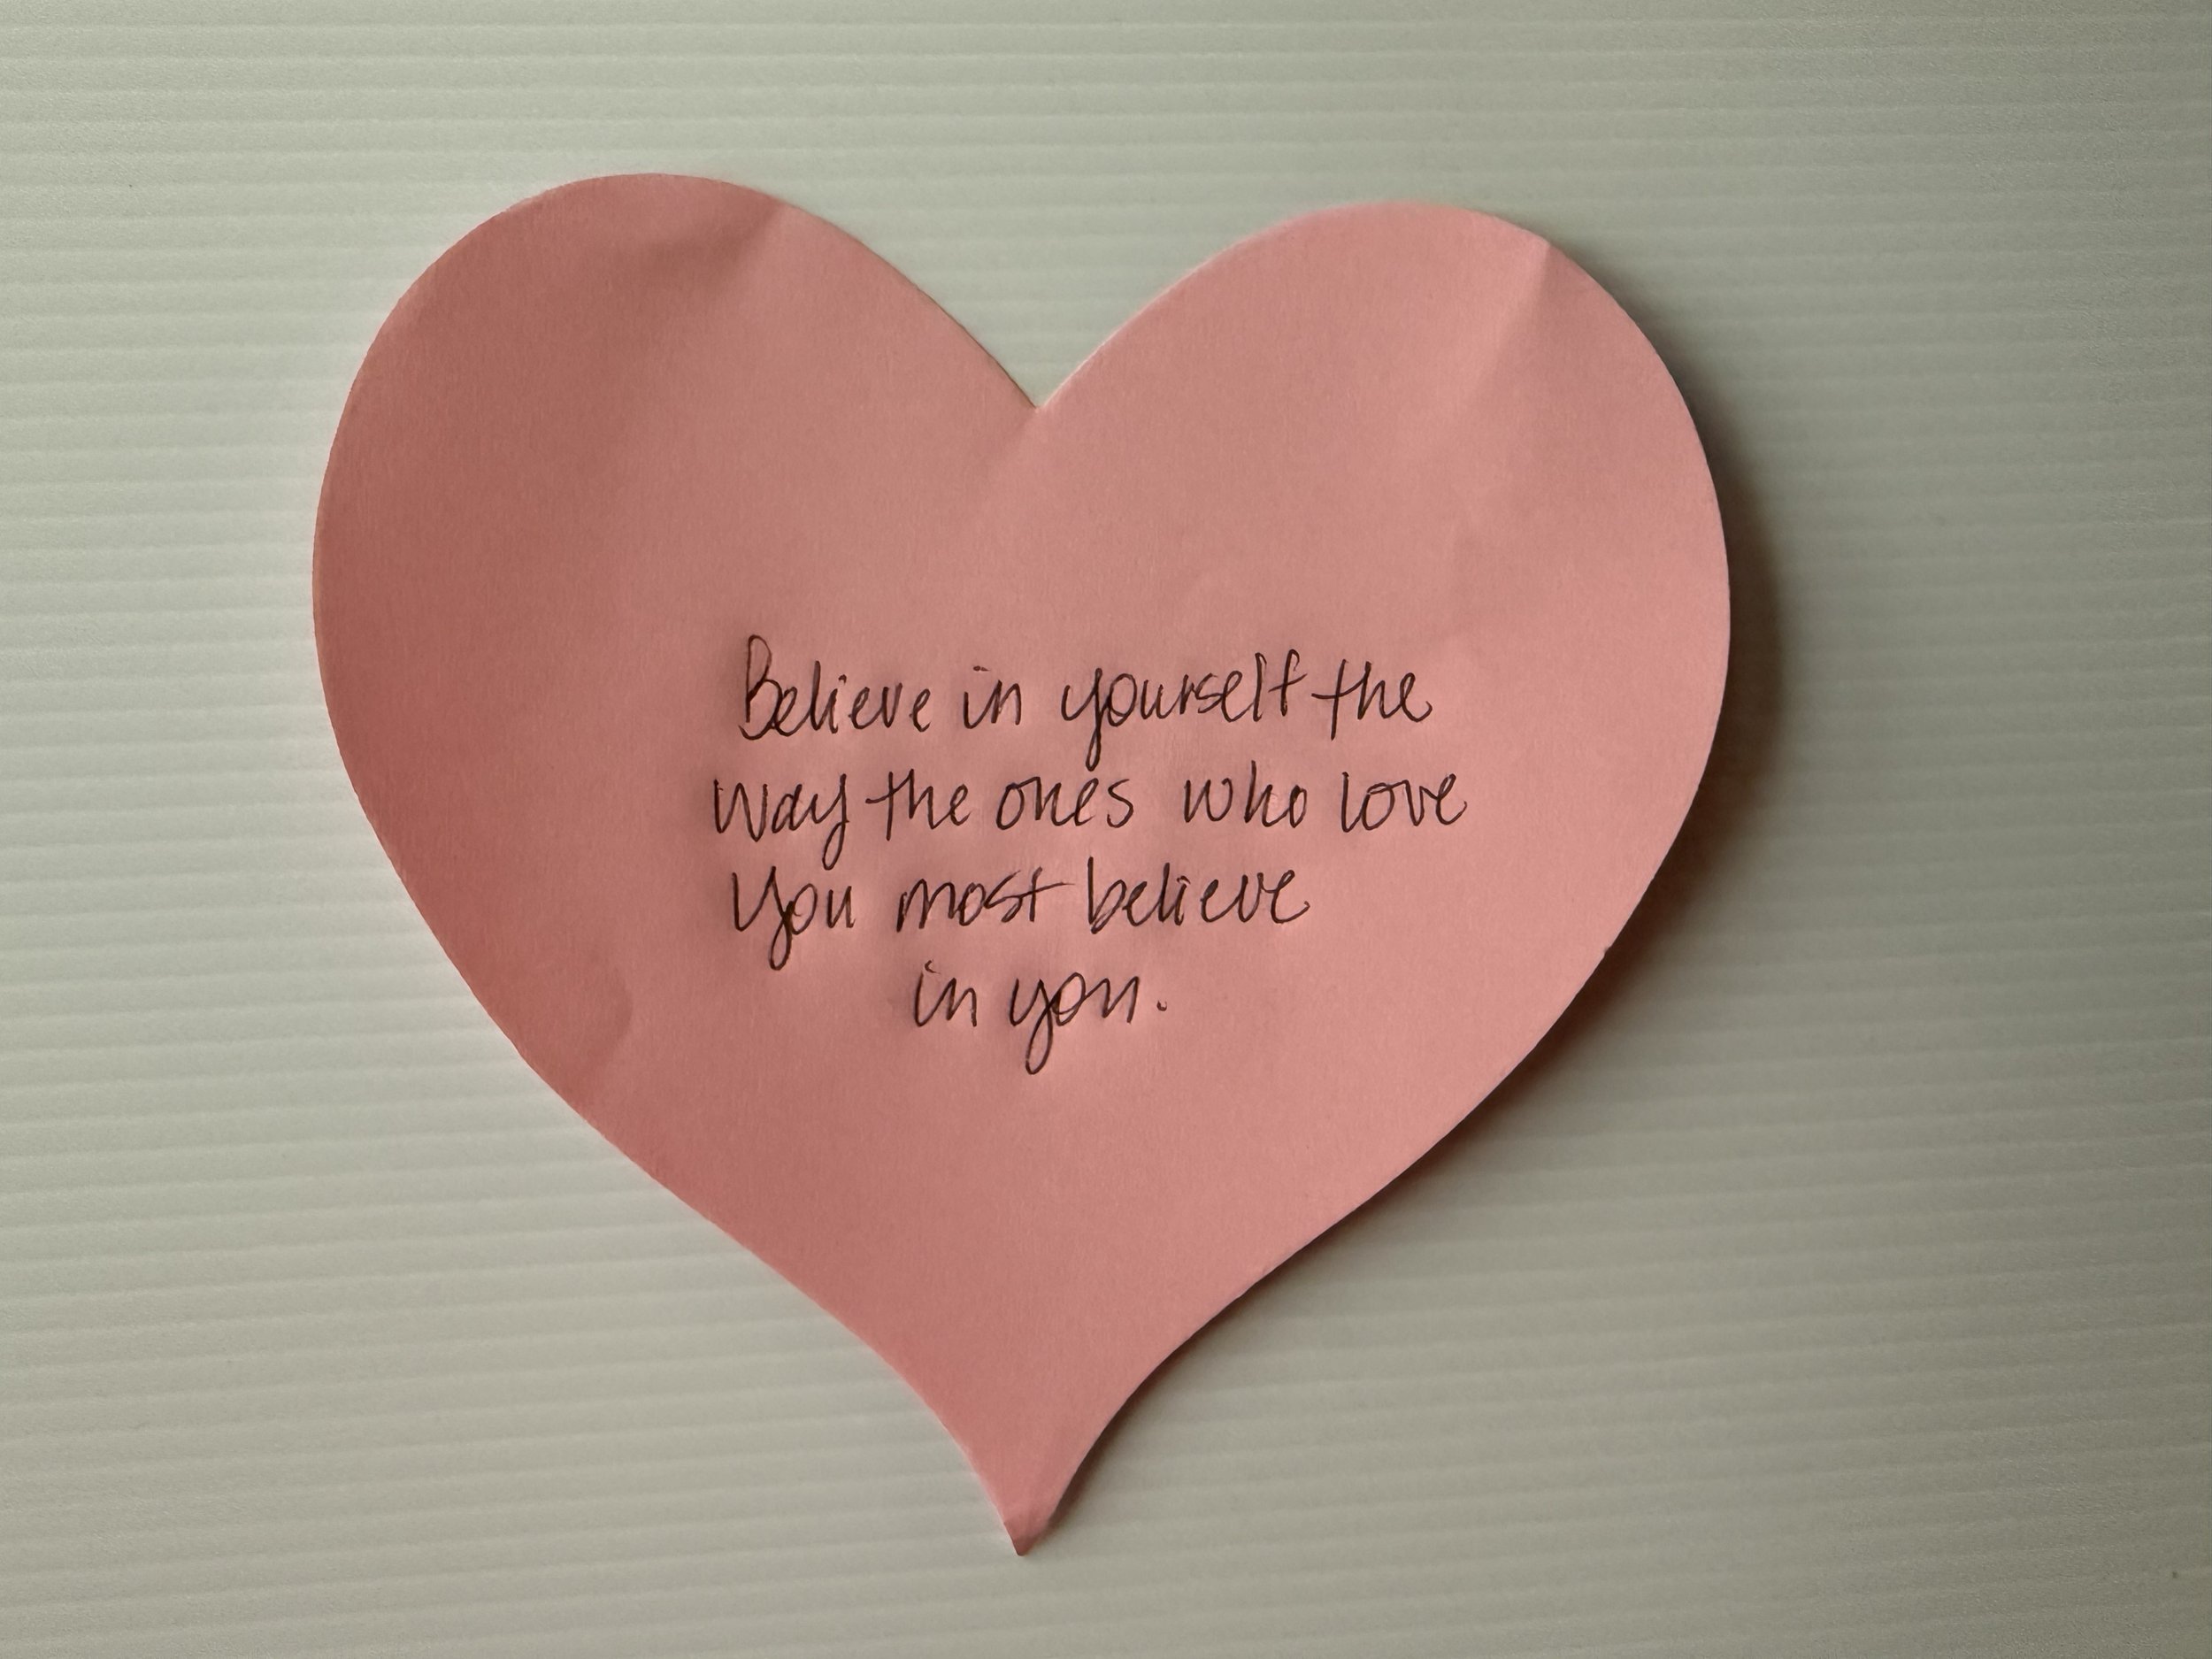 Believe in yourself the
way the ones who love
you most believe
in you.